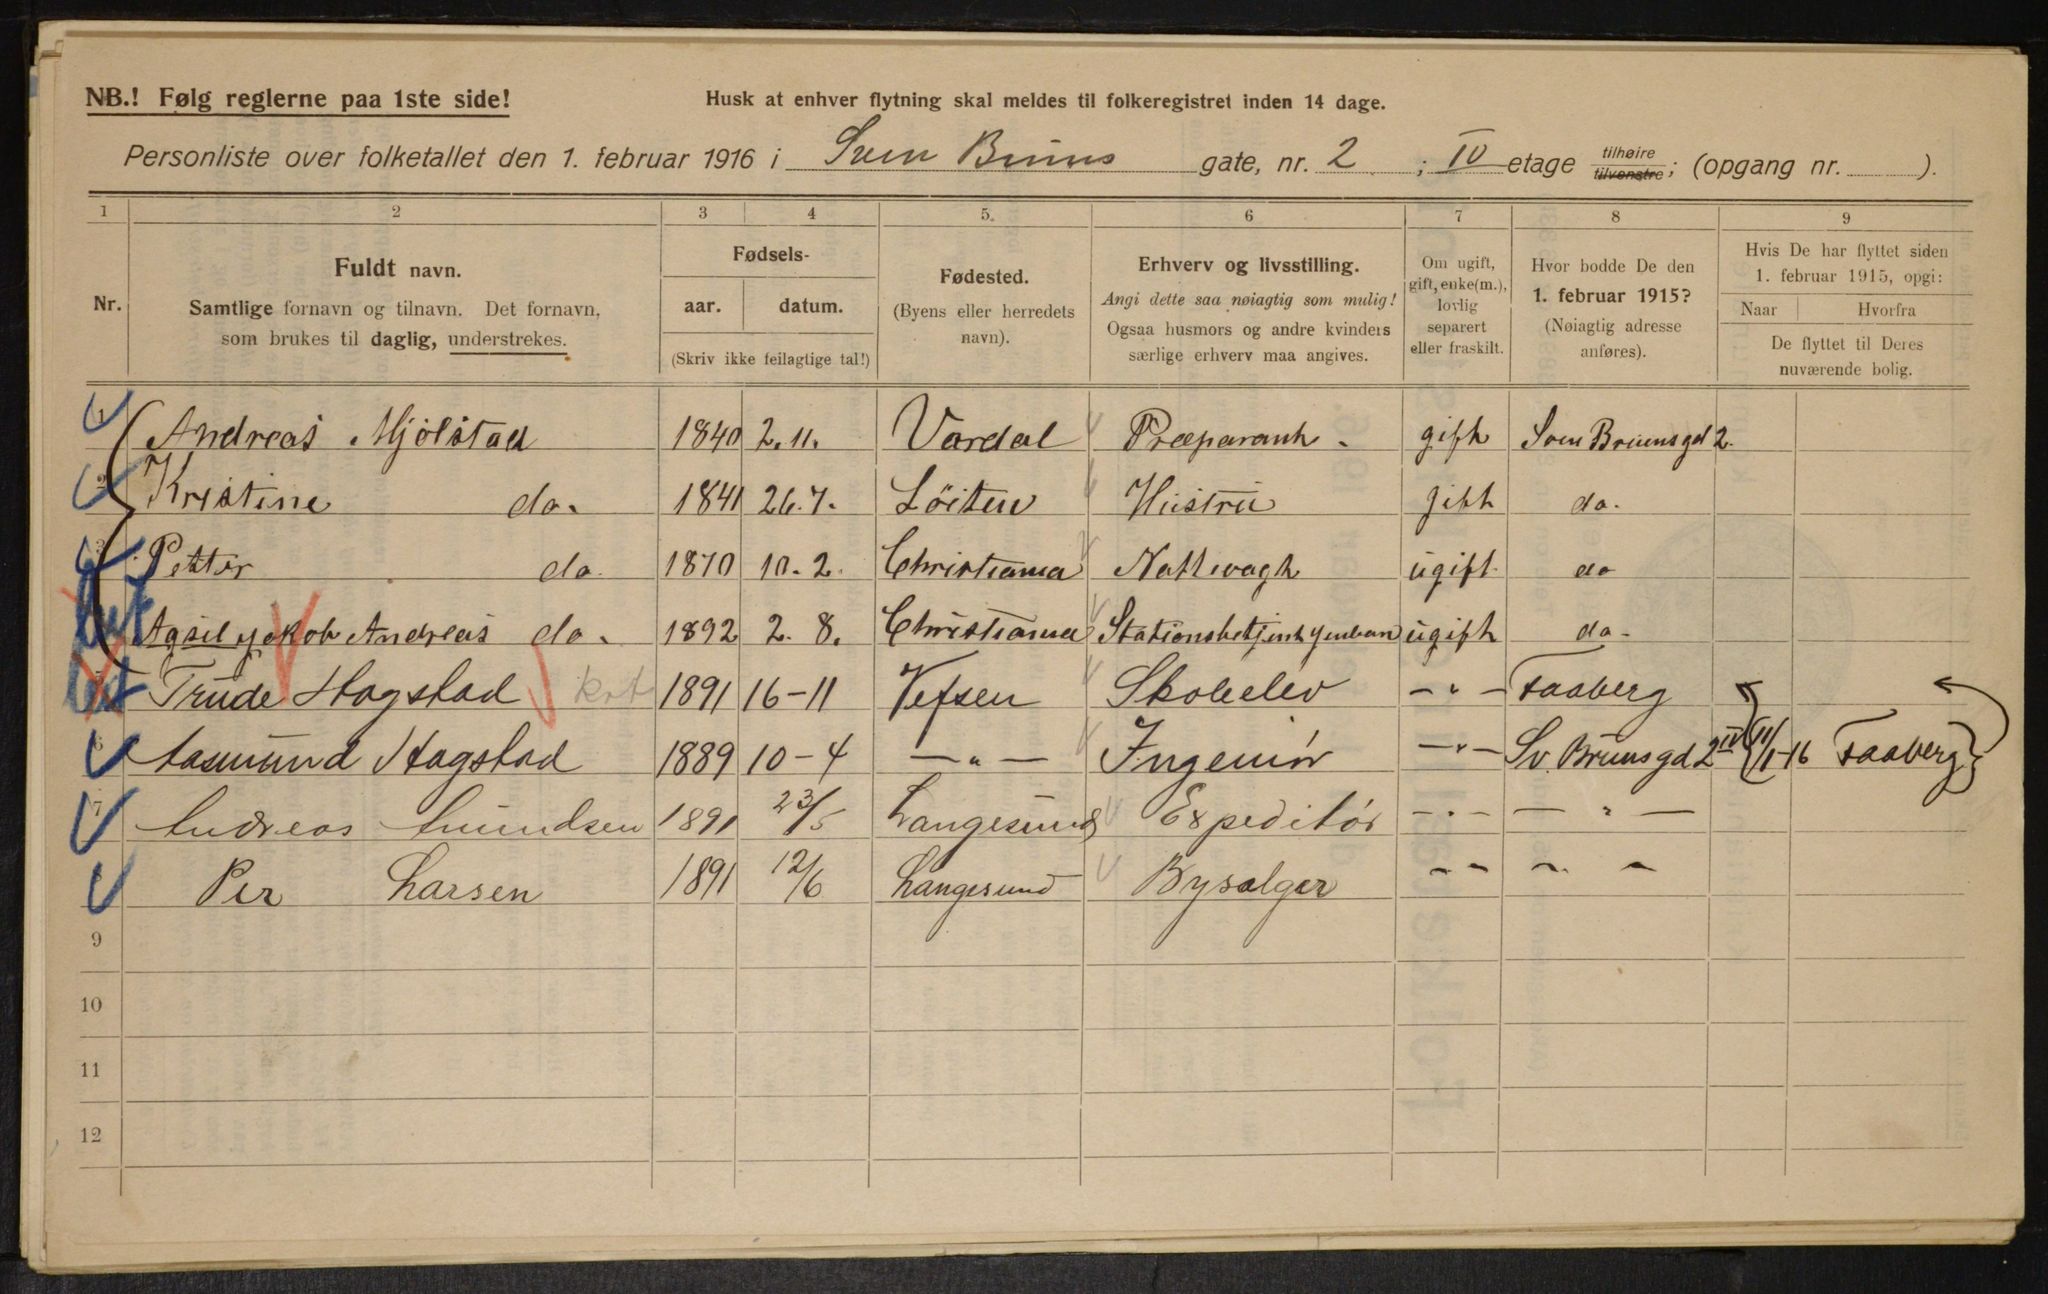 NB.! Følg reglerne paa 1ste side!
Husk at enhver flytning skal meldes til folkeregistret inden 14 dage.
Personliste over folketallet den 1. februar 1916 i Sven Bruns gate, nr. 2 ; IV etage tilhøire tilvenstre ; (opgang nr. ).
1 2 3 4 5. 6 7 8 9
Nr.
Fuldt navn.
Samtlige fornavn og tilnavn. Det fornavn,
som brukes til daglig, understrekes.
Fødsels-
aar. datum.
(Skriv ikke feilagtige tal!)
Fødested.
(Byens eller herredets
navn).
Erhverv og livsstilling.
Angi dette saa nøiagtig som mulig!
Ogsaa husmors og andre kvinders
særlige erhverv maa angives.
Om ugift,
gift, enke(m.),
lovlig
separert
eller fraskilt.
Hvor bodde De den
1. februar 1915?
(Nøiagtig adresse
anføres).
Hvis De har flyttet siden
1. februar 1915, opgi:
Naar Hvorfra
De flyttet til Deres
nuværende bolig.
1 Andreas Mjölstad 1840 2.11. Vardal Præparant - gift Sven Bruunsgd 2.
2 Kristine do. 1841 26.7. Löiten Hustru gift do.
3 Petter do. 1870 10.2. Christiania Nattevagt ugift do
Aksel Jakob Andreas do. 1892 2. 8. Christiania Stationsbetjent ugift do.
5 Trude Hagstad krt 1891 16-11 Vefsen Skoleelev - " - Faaberg
6 Aasmund Hagstad 1889 10-4 - " - Ingeniör - " - Sv. Brunsgd 2 IV 11/1-16 Faaberg
7 Andreas Amundsen 1891 23/5 Langesund Expeditör - " - - " -
Per Larsen 1891 12/6 Langesund Bysælger - " - - " -
9
10
11
12